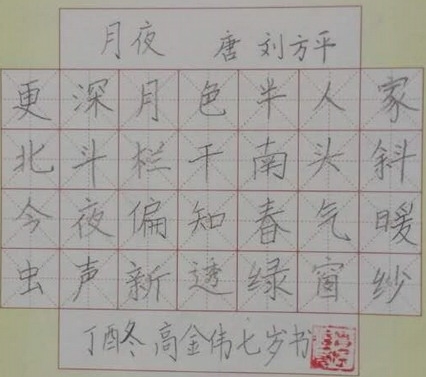 月夜 唐 刘方平
更深月色半人家
北斗栏干南头斜
今夜偏知春气暖
虫声新透绿窗纱
丁酉冬高金伟七岁书